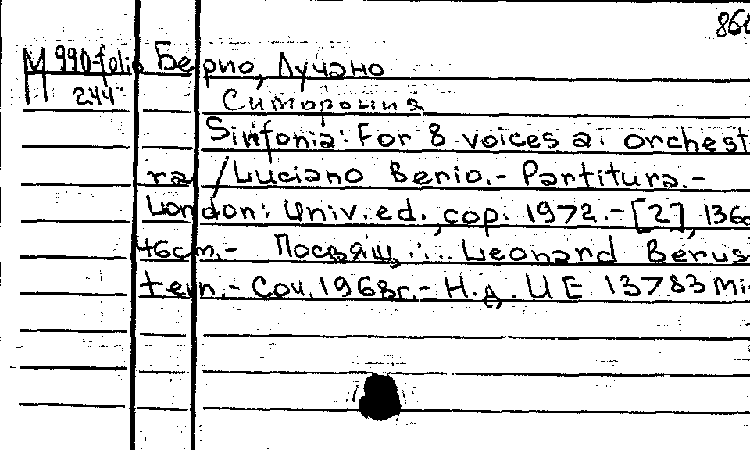 860
М 990-folio Берио, Лучано
244
Симфония
Sinfonia: For 8 voices a. orchest
ra / Luciano Berio.- Partitura.-
London: Univ. ed., cop. 1972.- [2], 136c
46cm.- Посвящ.: Leonard Berns
tein.- Соч. 1968г.- Н.д. UE 13783 Mi